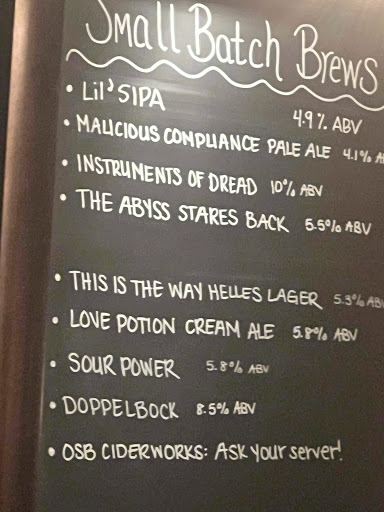 Small Batch Brews
• Lil' SIPA 4.9% ABV
• MALICIOUS COMPLIANCE PALE ALE 4.1% A
• INSTRUMENTS OF DREAD 10% ABV
• THE ABYSS STARES BACK 5.5% ABV
• THIS IS THE WAY HELLES LAGER 5.3% AB
• LOVE POTION CREAM ALE 5.8% ABV
• SOUR POWER 5.8% ABV
• DOPPELBOCK 8.5% ABV
• OSB CIDERWORKS: ASK your server!